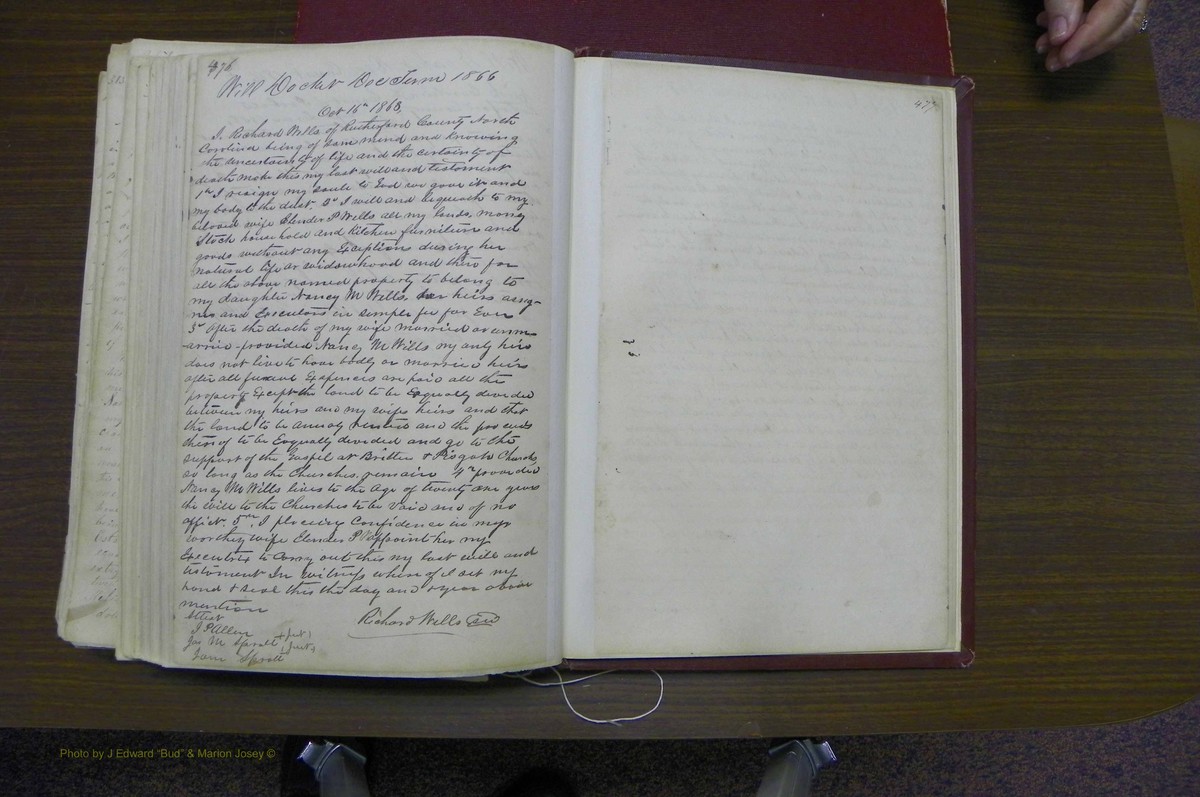 476
Will Docket Dec Term 1866
Oct 16th 1863,
I, Richard Wells of Rutherford County North
Carolina being of sane mind and knowing
the uncertainty of life and the certainty of
death make this my last will and testament
1st I resign my soule to God who gave it and
my body to the dust. 2d I will and bequeath to my
beloved wife Elender P Wells all my lands, money
Stock household and Kitchen furniture and
goods without any Exceptions during her
natural life or widowhood and then for
all the above named property to belong to
my daughter Nancy M Wills, her heirs assig-
ns and Executors in simple fee for Ever
3d After the death of my wife married or unm-
arried - provided Nancy M Wills my only heir
does not live to have bodly or married heirs
after all funeral Expences are paid all the
property Except the land to be Equally devided
between my heirs and my wifes heirs and that
the land to be annaly rented and the proceeds
thereof to be Equally devided and go to the
support of the Gospel at Brittin & Pisgah Church
as long as the Churches, remain 4th provided
Nancy M Wills lives to the age of twenty one years
the will to the Churches to be void and of no
effect. 5th, I placeing Confidence in my
worthy wife Elender P W appoint her my
Executrix to Carry out this my last will and
testament In witness whereof I set my
hand & seal this the day and year above
mention
Attest
J P Allen
Jas M Spratt
Jurat
Richard Wells Seal
477
Photo by J Edward "Bud" & Marion Josey ©